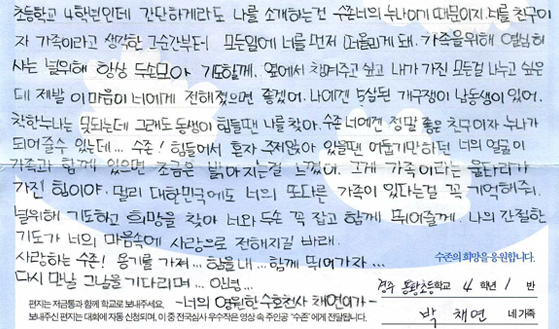 초등학교 4학년인데 간단하게라도 나를 소개하는건 수존너의 누나이기 때문이지. 너를 친구이
자 가족이라고 생각한 그순간부터 모든일에 너를 먼저 떠올리게 돼. 가족을위해 열심히
사는 널위해 항상 두손모아 기도할께. 옆에서 챙겨주고 싶고 내가 가진 모든걸 나누고 싶은
데 제발 이 마음이 너에게 전해졌으면 좋겠어. 나에겐 5살된 개구쟁이 남동생이 있어.
착한누나는 못되는데 그래도 동생이 힘들땐 나를 찾아. 수존 너에겐 정말 좋은 친구이자 누나가
되어줄수 있는데... 수존! 힘들어서 혼자 주저앉아 있을땐 어둡기만하던 너의 얼굴이
가족과 함께 있으면 조금은 밝아지는걸 느꼈어. 그게 가족이라는 울타리가
가진 힘이야. 멀리 대한민국에도 너의 또다른 가족이 있다는걸 꼭 기억해줘.
널위해 기도하고 희망을 찾아 너와 두손 꼭 잡고 함께 뛰어줄께. 나의 간절한
기도가 너의 마음속에 사랑으로 전해지길 바래.
사랑하는 수존! 용기를 가져... 힘을내... 함께 뛰어가자...
다시 만날 그날을 기다리며... 안녕...
-너의 영원한 수호천사 채연이가-
수존의 희망을 응원합니다.
경주 초등학교 4 학년 1 반
박 채연 네 가족
편지는 저금통과 함께 학교로 보내주세요.
보내주신 편지는 대회에 자동 신청되며, 이 중 전국심사 우수작은 영상 속 주인공 "수존"에게 전달됩니다.